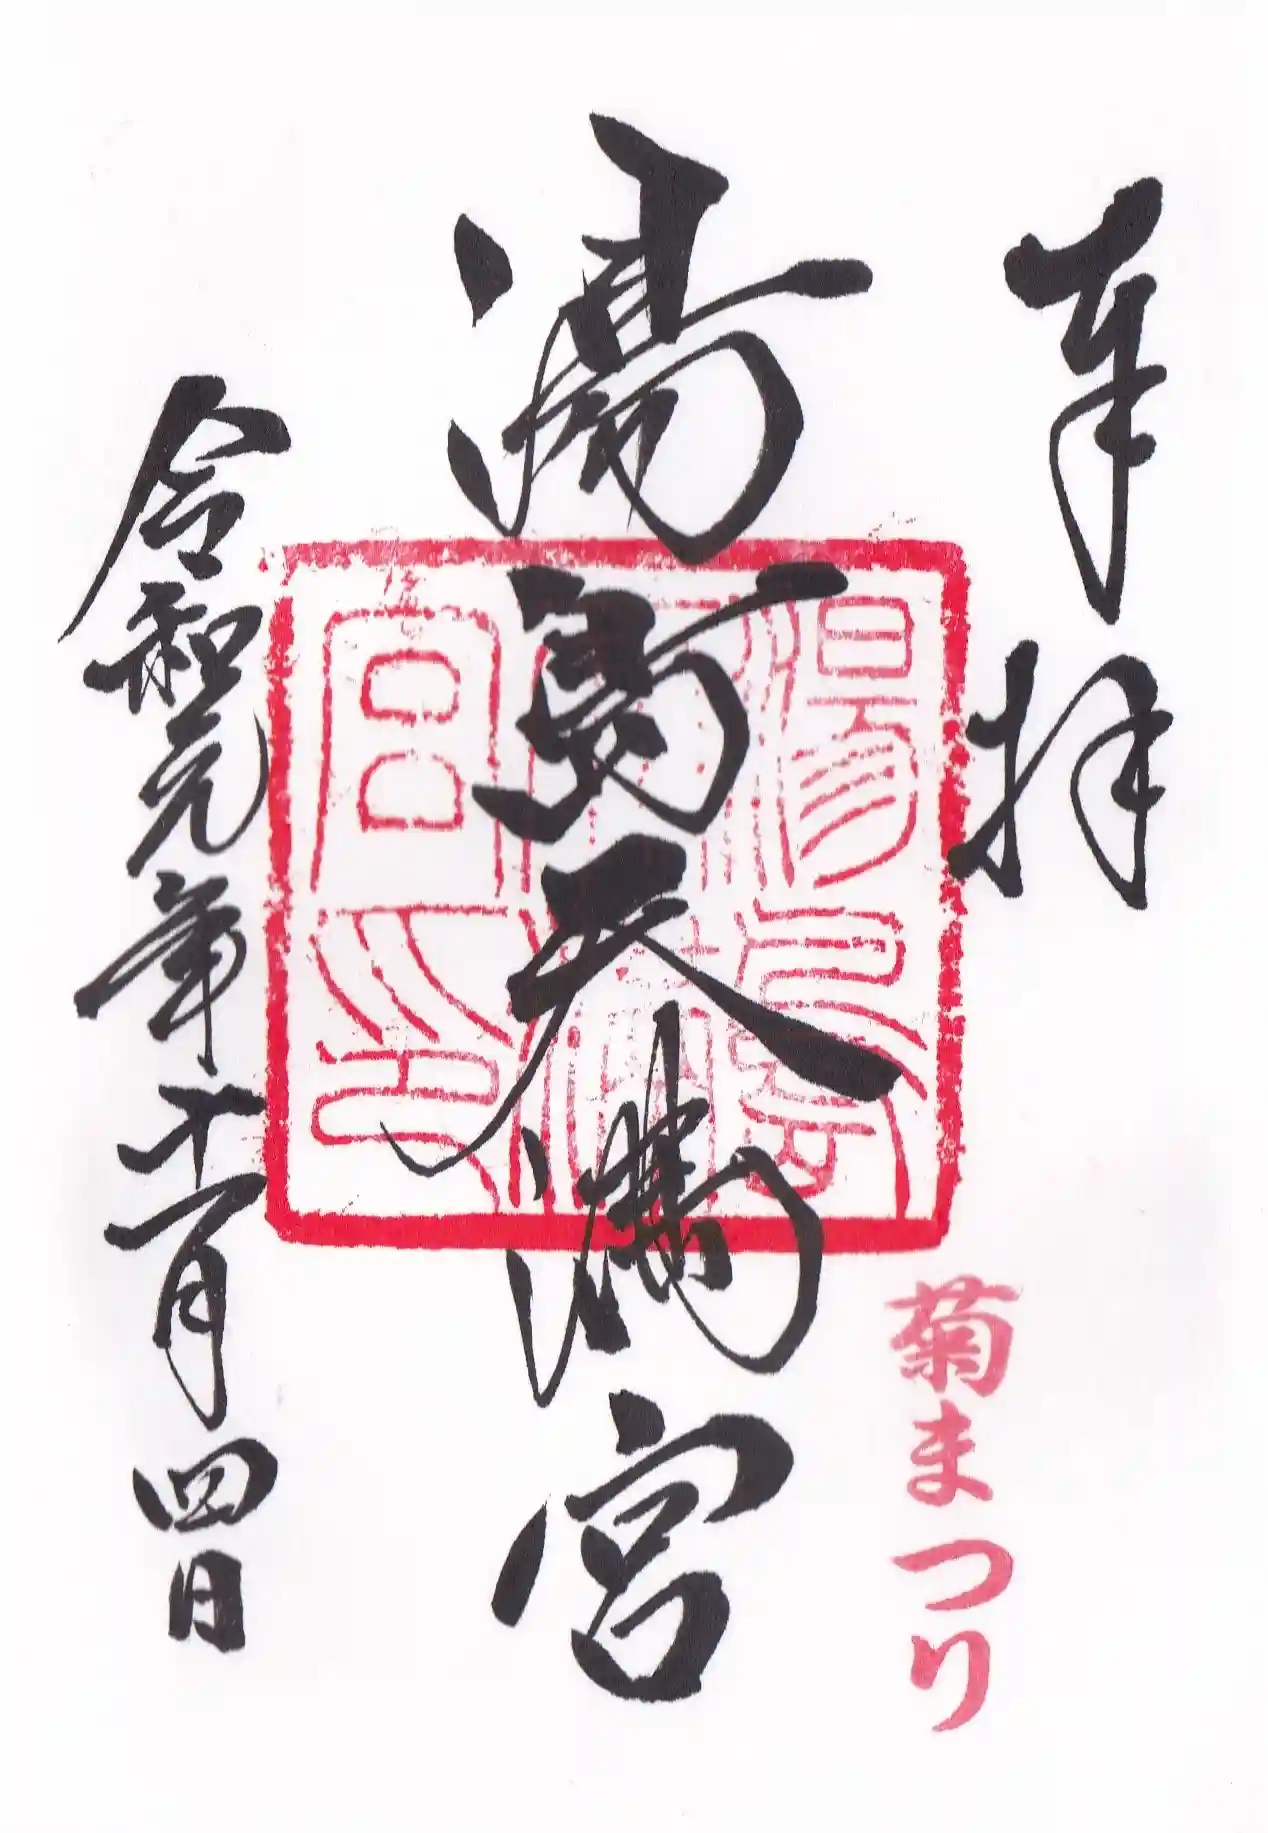 奉拝
菊まつり
湯島天満宮
令和元年十一月四日